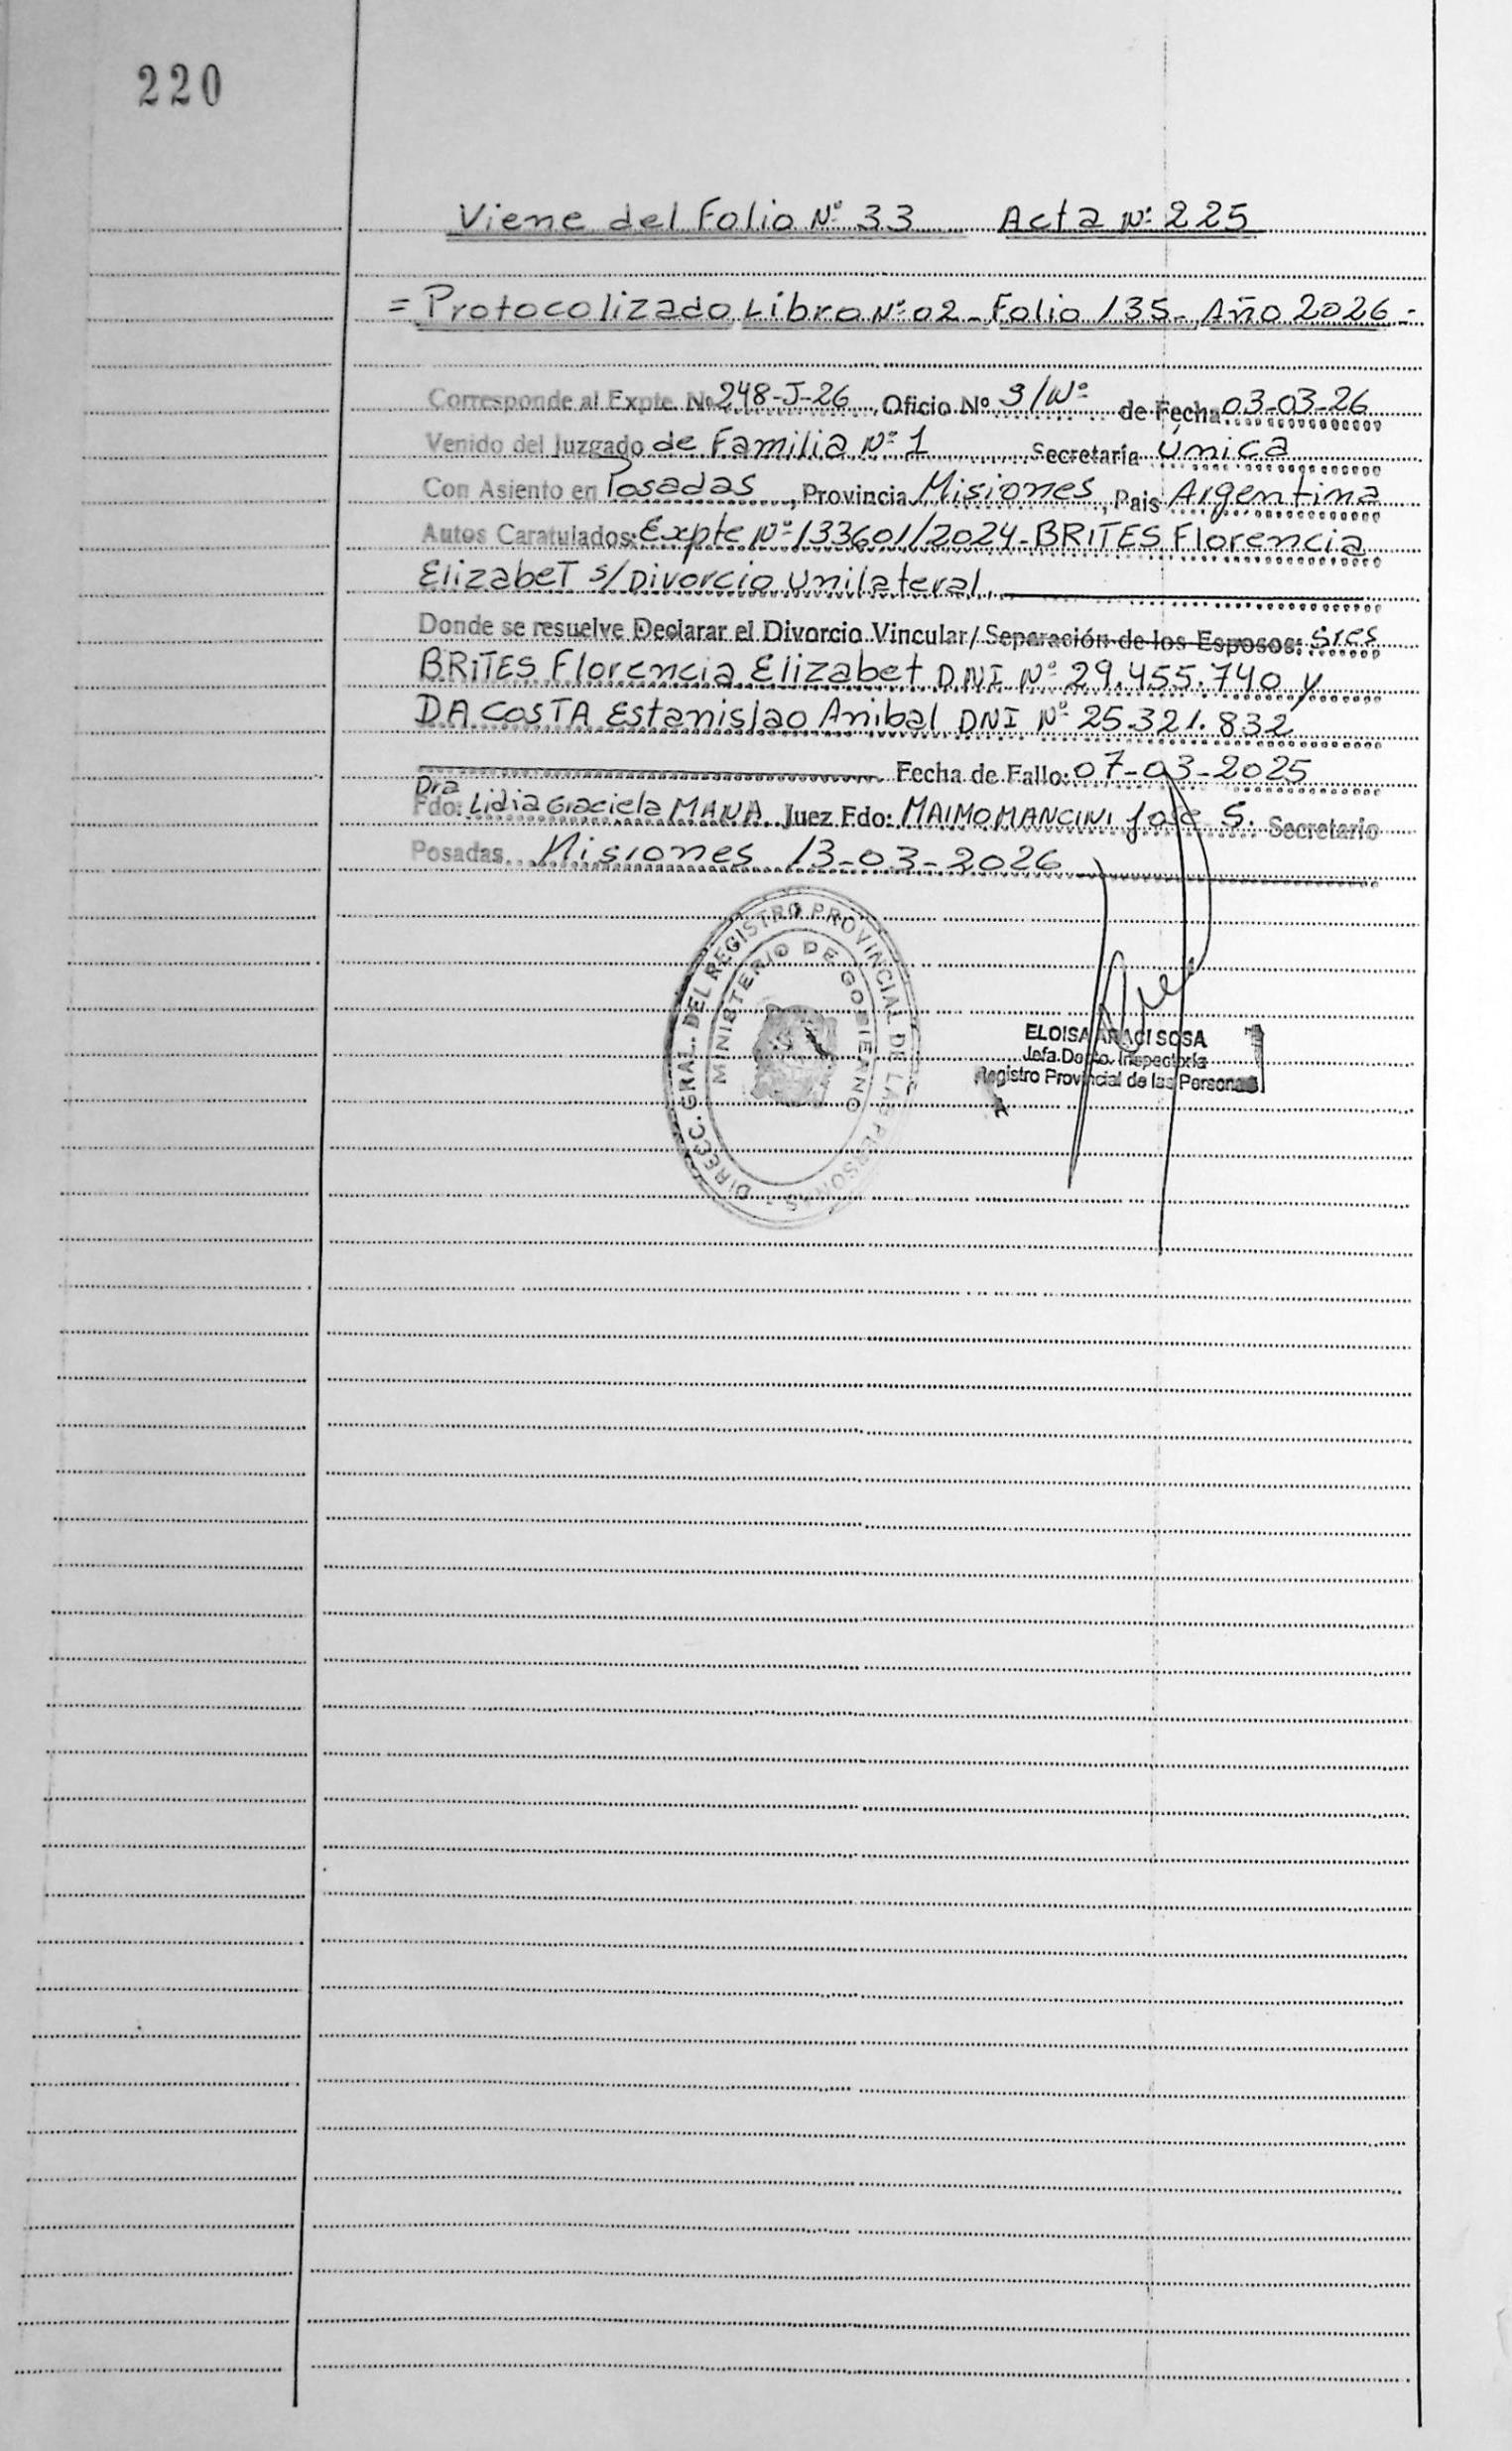 220
Viene del Folio Nº 33 Acta Nº 225
= Protocolizado Libro Nº 02 - Folio 135 - Año 2026 -
Corresponde al Expte. Nº 248-J-26, Oficio Nº S/Nº de Fecha 03-03-26
Venido del Juzgado de Familia Nº 1 Secretaría Única
Con Asiento en Posadas, Provincia Misiones, Pais Argentina
Autos Caratulados: Expte Nº 133601/2024 - BRITES Florencia
Elizabet s/Divorcio Unilateral.
Donde se resuelve Declarar el Divorcio Vincular/ Separación de los Esposos: Sres
BRITES Florencia Elizabet DNI Nº 29.455.740 y
DA COSTA Estanislao Anibal DNI Nº 25.321.832
Fecha de Fallo: 07-03-2025
Dra
Fdo: Lidia Graciela MANA Juez Fdo: MAIMO MANCINI José S. Secretario
Posadas Misiones 13-03-2026
DIRECC. GRAL. DEL REGISTRO PROVINCIAL DE LAS PERSONAS -
MINISTERIO DE GOBIERNO
ELOISA ARACI SOSA
Jefa Depto. Inspectoría
Registro Provincial de las Personas